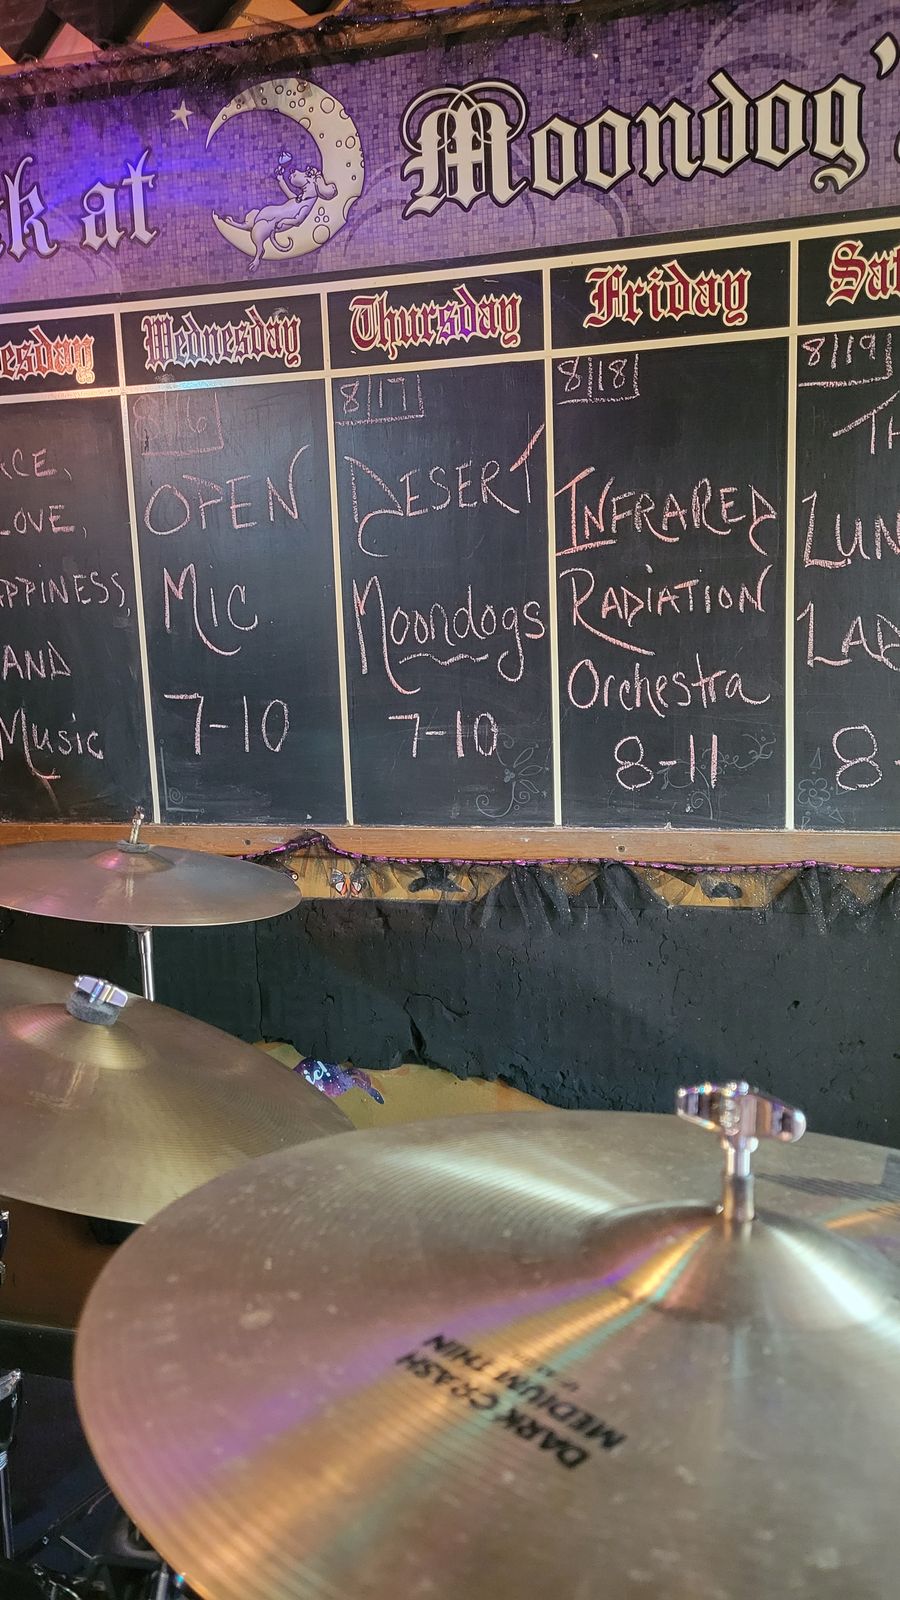 k at Moondog's
esday
ACE,
LOVE,
APPINESS,
AND
Music
Wednesday
8/16
OPEN
Mic
7-10
Thursday
8/17
DESERT
Moondogs
7-10
Friday
8/18
INFRARED
RADIATION
Orchestra
8-11
Sat
8/19
TH
LUN
LAD
8-
ic!
DARK CRASH
MEDIUM THIN